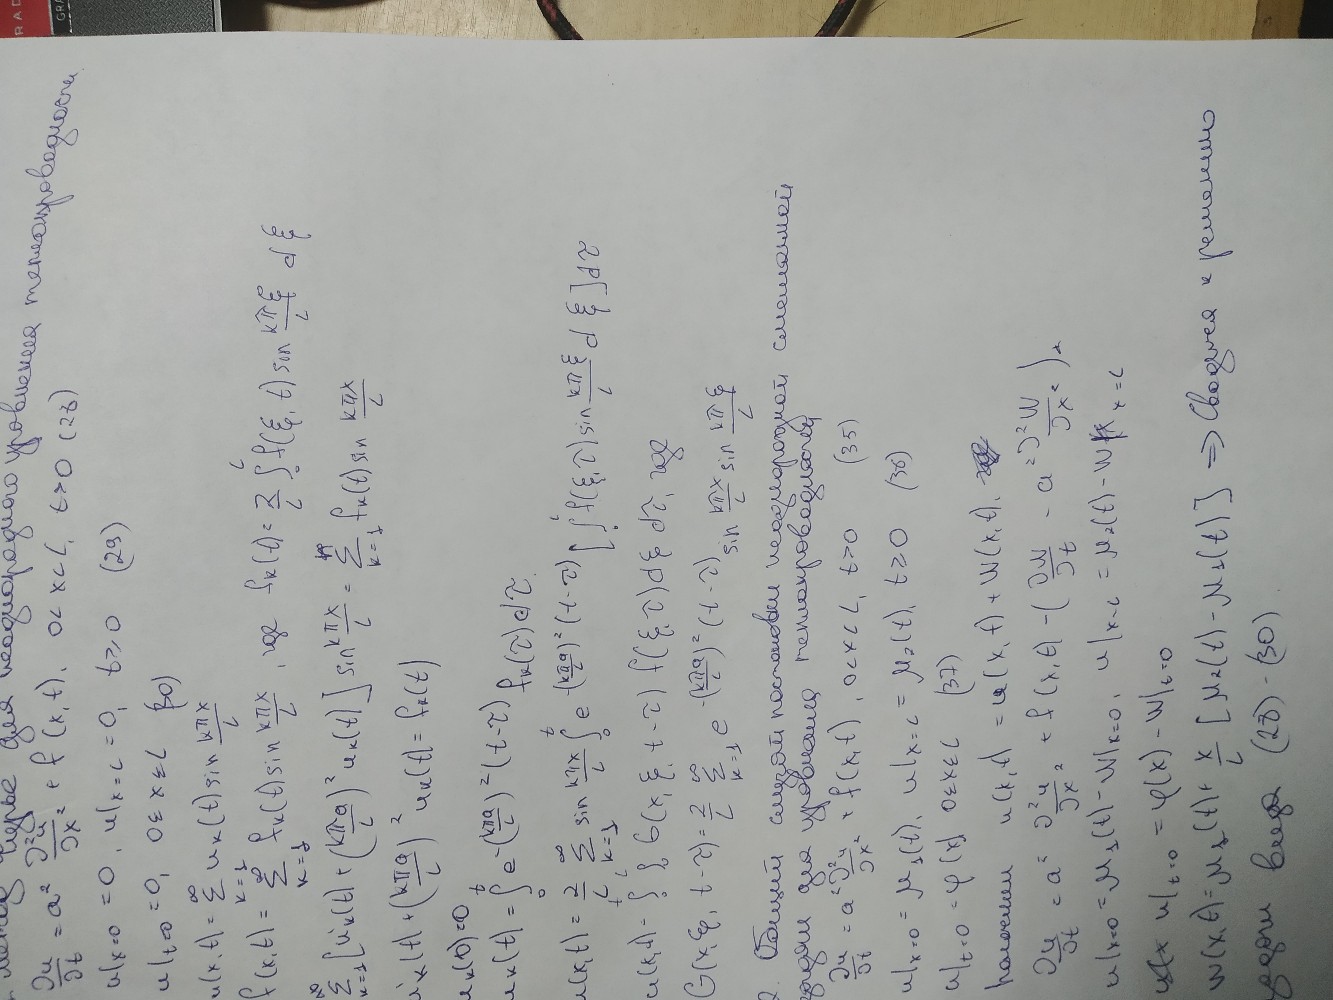 GRAD
GRA
метод Фурье для неоднородного уравнения теплопроводности.
∂u/∂t = a² ∂²u/∂x² + f(x,t), 0<x<L, t>0 (28)
u|x=0 = 0, u|x=L = 0, t≥0 (29)
u|t=0 = 0, 0≤x≤L (30)
u(x,t) = ∑_{k=1}^∞ uₖ(t) sin kπx/L
f(x,t) = ∑_{k=1}^∞ fₖ(t) sin kπx/L, где fₖ(t) = 2/L ∫₀^L f(ξ,t) sin kπξ/L dξ
∑_{k=1}^∞ [u̇ₖ(t) + (kπa/L)² uₖ(t)] sin kπx/L = ∑_{k=1}^∞ fₖ(t) sin kπx/L
u̇ₖ(t) + (kπa/L)² uₖ(t) = fₖ(t)
uₖ(0)=0
uₖ(t) = ∫₀^t e^{-(kπa/L)²(t-τ)} fₖ(τ)dτ.
u(x,t) = 2/L ∑_{k=1}^∞ sin kπx/L ∫₀^t e^{-(kπa/L)²(t-τ)} [∫₀^L f(ξ,τ) sin kπξ/L dξ]dτ
u(x,t) = ∫₀^t ∫₀^L G(x,ξ,t-τ) f(ξ,τ)dξ dτ, где
G(x,ξ,t-τ) = 2/L ∑_{k=1}^∞ e^{-(kπa/L)²(t-τ)} sin kπx/L sin kπξ/L
2. Общий случай постановки неоднородной смешанной
задачи для уравнения теплопроводности
∂u/∂t = a² ∂²u/∂x² + f(x,t), 0<x<L, t>0 (35)
u|x=0 = μ₁(t), u|x=L = μ₂(t), t≥0 (36)
u|t=0 = φ(x) 0≤x≤L (37)
Положим u(x,t) = u(x,t) + W(x,t),
∂u/∂t = a² ∂²u/∂x² + f(x,t) - (∂W/∂t - a² ∂²W/∂x²),
u|x=0 = μ₁(t) - W|x=0, u|x=L = μ₂(t) - W|x=L
u|t=0 = φ(x) - W|t=0
W(x,t) = μ₁(t) + x/L [μ₂(t) - μ₁(t)] ⇒ Сводится к решению
задачи вида (28)-(30).